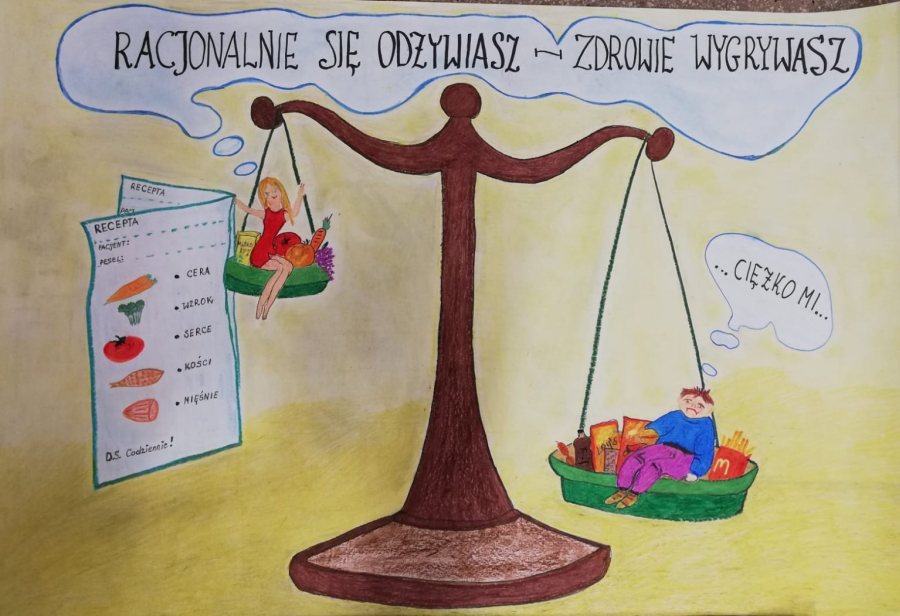 RACJONALNIE SIĘ ODŻYWIASZ - ZDROWIE WYGRYWASZ
RECEPTA
RECEPTA
PACJENT:
PESEL:
• CERA
• WZROK
• SERCE
• KOŚCI
• MIĘŚNIE
D.S. Codziennie!
... CIĘŻKO MI...
M